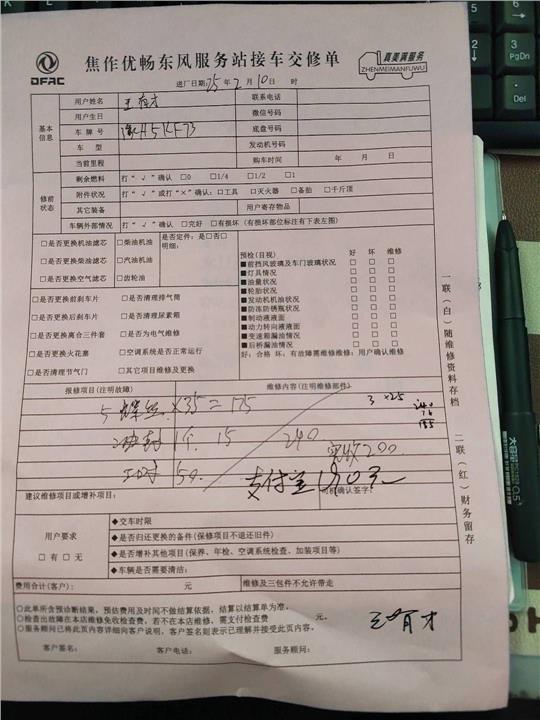 DFAC
焦作优畅东风服务站接车交修单
真美满服务
ZHENMEIMANFUWU
进厂日期:25年2月10日 时
基本信息
用户姓名 联系电话
用户生日 微信号码
车牌号 豫H5KF73 底盘号码
车型 发动机号码
当前里程 购车时间 年 月 日
修前状态
剩余燃料 打“√”确认 □0 □1/4 □1/2 □1
附件状况 打“√”或打“×”确认:□工具 □灭火器 □备胎 □千斤顶
其它装备 用户寄存物品
车辆外部情况 打“√”确认 □完好 □有损坏(有损坏部位标注有下表左图)
□是否更换机油滤芯 □柴油机油
□是否更换柴油滤芯 □汽油机油
□是否更换空气滤芯 □齿轮油
是否定件:是□否□
明细:
□是否更换前刹车片 □是否清理排气筒
□是否更换后刹车片 □是否清理尿素箱
□是否更换离合三件套 □是否为电气维修
□是否更换火花塞 □空调系统是否正常运行
□是否清理节气门 □其它项目维修及更换
预检(目视) 好 坏 维修
■前挡风玻璃及车门玻璃状况 □ □ □
■灯具情况 □ □ □
■油量状况 □ □ □
■轮胎状况 □ □ □
■发动机机油状况 □ □ □
■防冻防锈瓶状况 □ □ □
■制动液液面 □ □ □
■动力转向液液面 □ □ □
■变速箱漏油情况 □ □ □
■后桥漏油情况 □ □ □
好:合格 坏:有故障需维修维修:用户确认维修
报修项目(注明故障) 维修内容(注明维修部件)
5 螺丝 ×35=175 3 ×25
1个 15 240 实收200
工时 50 支付宝
建议维修项目或增补项目: 司机确认签字:
用户要求
□有 □无
◆交车时限
◆是否归还更换的备件(保修项目不退还旧件)
◆是否增补其他项目(保养、年检、空调系统检查、加装项目等)
◆车辆是否需要清洁:
费用合计(客户): 元 维修及三包件不允许带走
◎此单所含预诊断结果,预估费用及时间不做结算依据,结算以结算单为准。
◎检查出故障在本店维修免收检查费,若不在本店维修,需支付检查费 元。
◎服务顾问已将此页内容详细向客户说明,客户签名则表示已理解并接受此页内容。
客户签名: 客户电话: 服务顾问:
一联(白)随维修资料存档
二联(红)财务留存